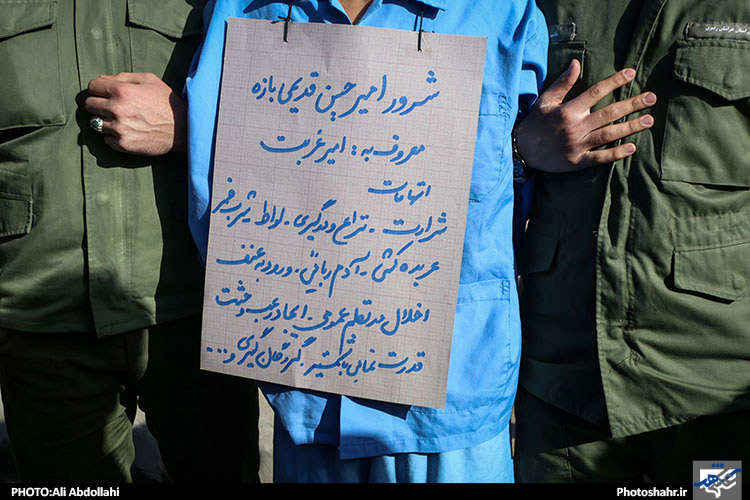 شرور امیر حسین قدیمی بازه
معروف به : امیر غربت
اتهامات
شرارت - نزاع و درگیری - لواط - شرب خمر
عربده کشی - آدم ربایی - ورود به عنف
اخلال در نظم عمومی - ایجاد رعب و وحشت
قدرت نمایی با شمشیر - گروگان گیری و ...
PHOTO:Ali Abdollahi
Photoshahr.ir